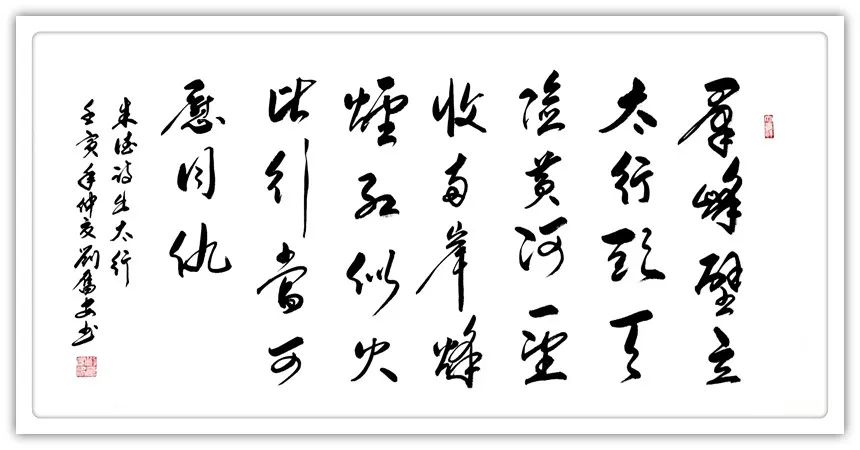 羣峰壁立
太行頭天
險黄河一望
收两岸烽
煙红似火
此行當可
慰同仇
朱德诗出太行
壬寅年仲夏刘奮安书